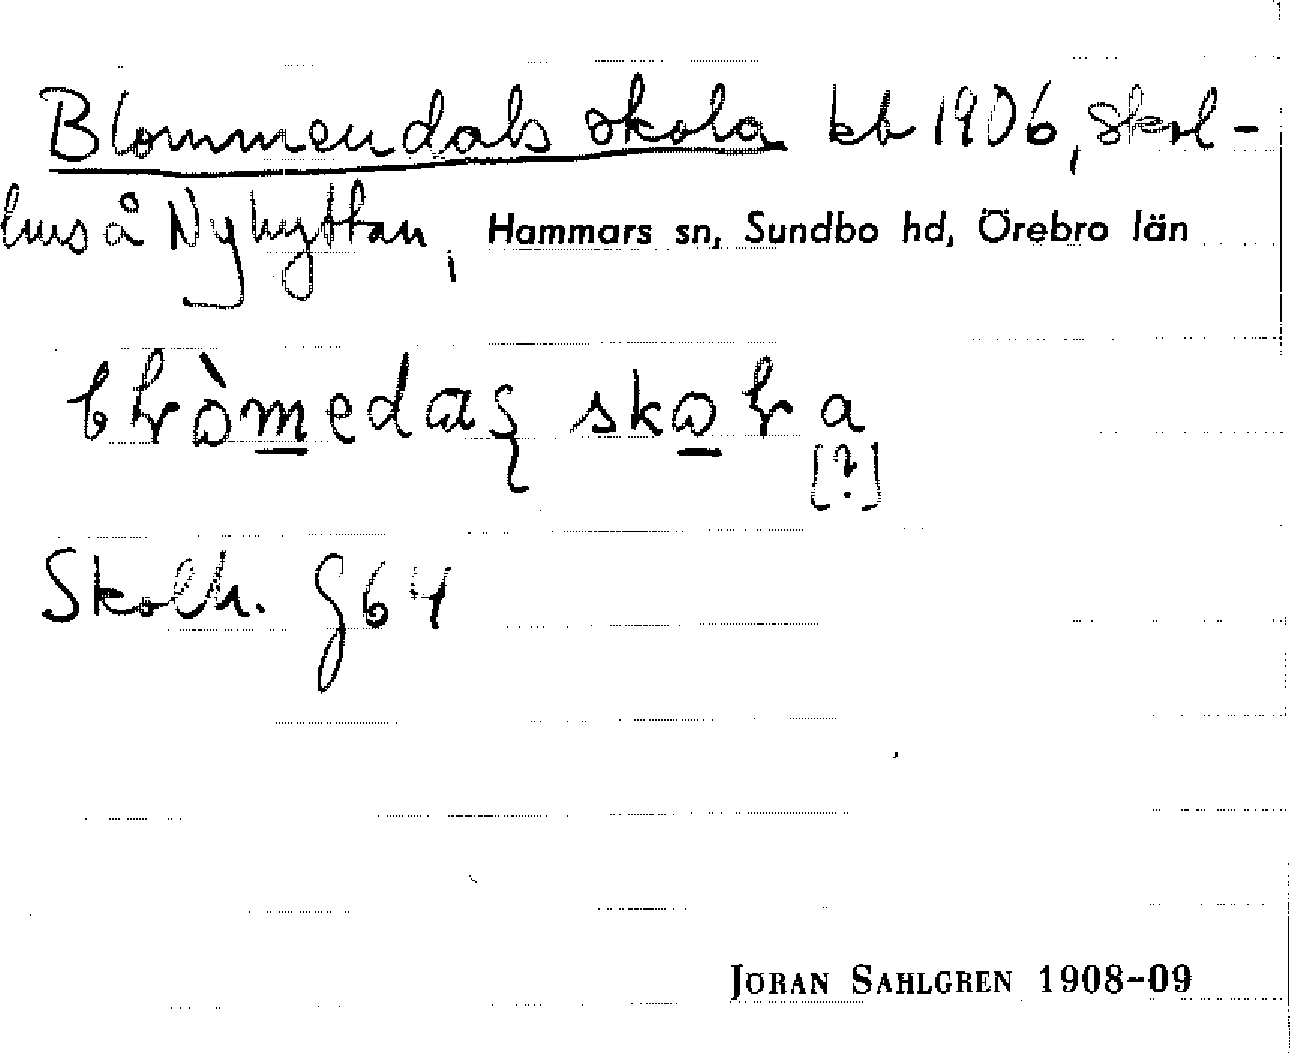 Blommendals skola kb 1906, skol-
hus å Nyhyttan, Hammars sn, Sundbo hd, Örebro län
skola
[?]
Skolh. g 64
JÖRAN SAHLGREN 1908-09